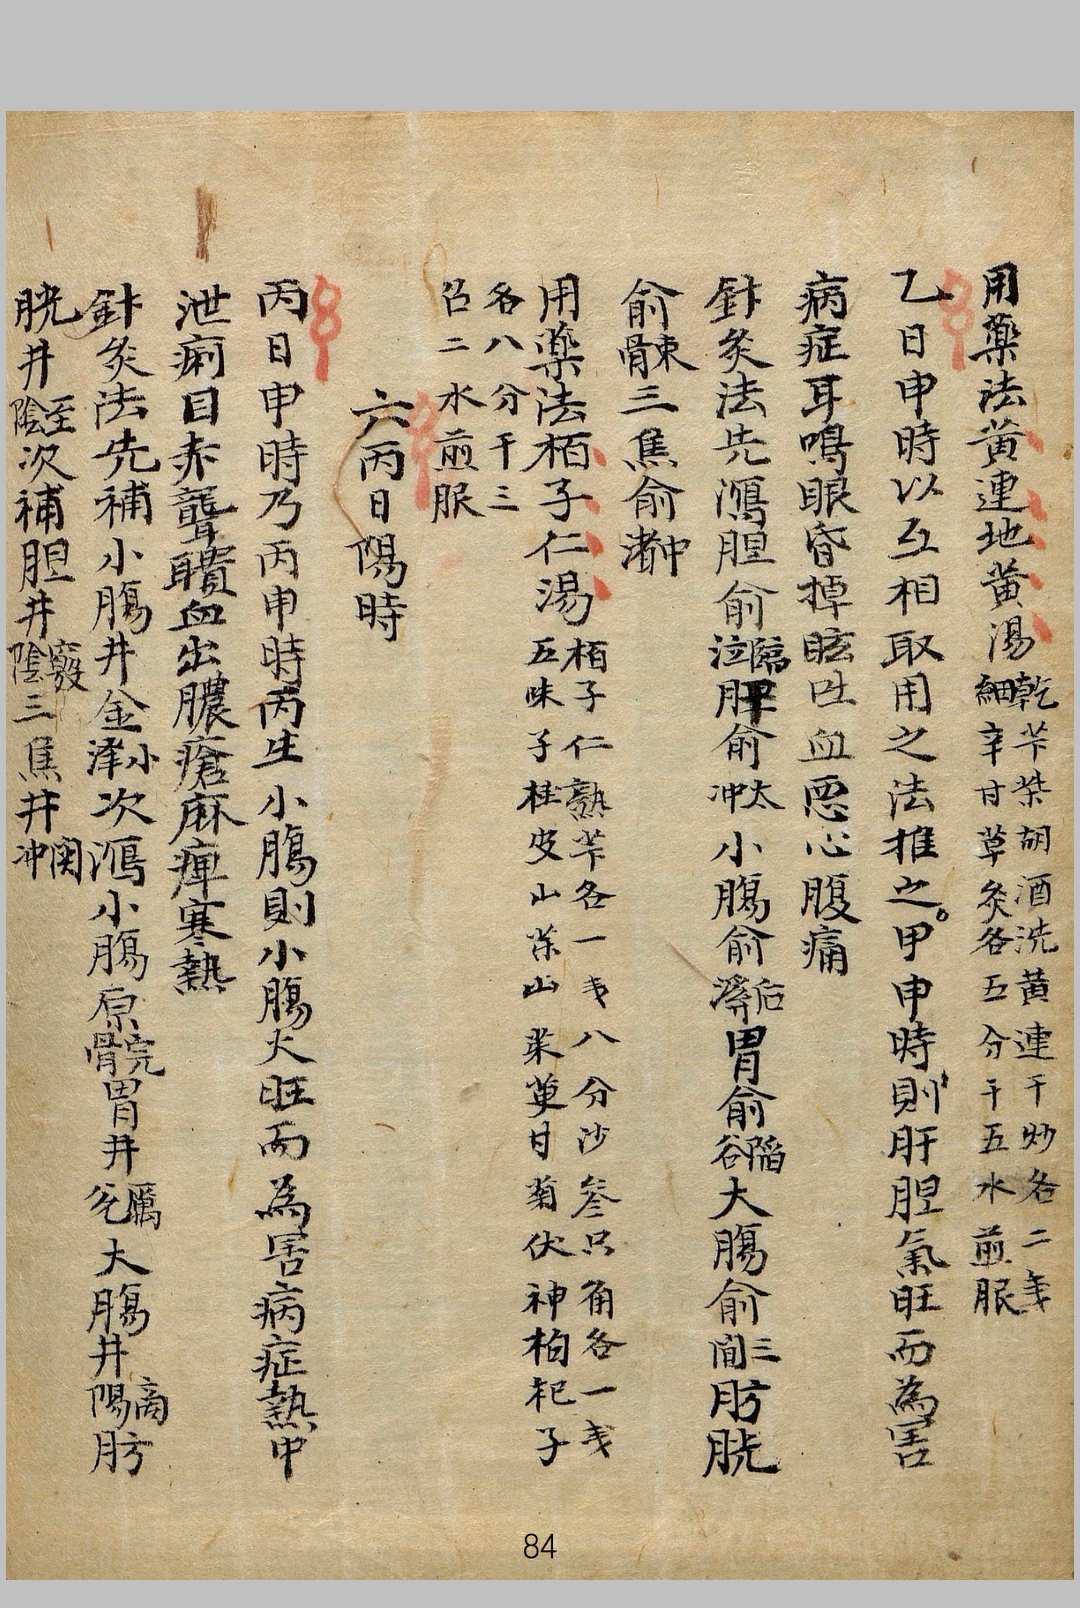 用藥法黃連地黃湯乾芐柴胡酒洗黃連干炒各二戔
細辛甘草炙各五分干五水煎服
乙日申時以互相取用之法推之甲申時則肝胆氣旺而為害
病症耳鳴眼昏掉眩吐血惡心腹痛
針灸法先瀉胆俞臨泣脾俞太冲小腸俞后溪胃俞陷谷大腸俞三間肪胱
俞束骨三焦俞中渚
用藥法栢子仁湯栢子仁熟芐各一戔八分沙參只角各一戔
五味子桂皮山茱山菜萸甘菊伏神枸杞子
各八分干三
召二水煎服
六丙日陽時
丙日申時乃丙申時丙生小腸則小腸火旺而為害病症熱中
泄痢目赤聾聵血出膿瘡麻痺寒熱
針灸法先補小腸井金小澤次瀉小腸原完骨胃井厲兌大腸井商陽肪
胱井至陰次補胆井竅陰三焦井関冲
84